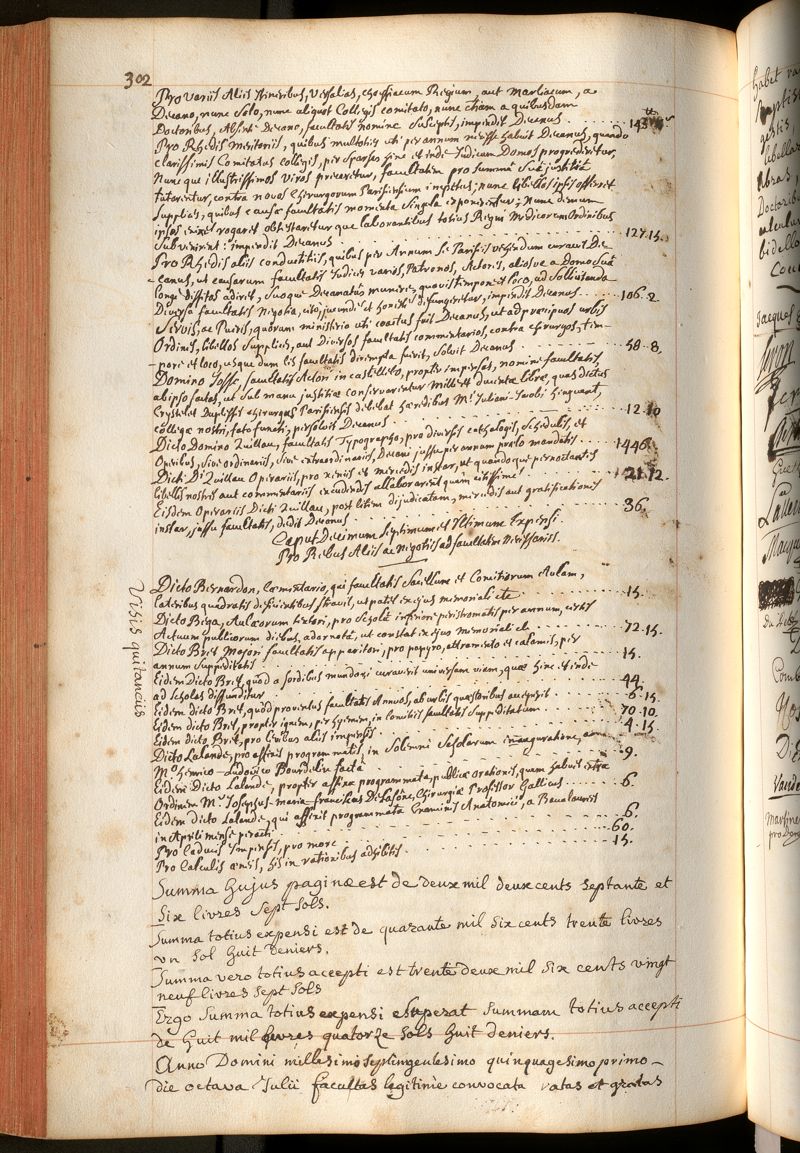 302
Pro Variis Aliis Itineribus, Versalias, Regium, aut Marliacum, a
Decano, nunc Solo, nunc aliquot Collegis comitato, nunc etiam a quibusdam
Doctoribus, Absente Decano, facultatis nomine Susceptis, impendit Decanus . . . . . 143
Pro Rhedis Meritoriis, quibus multoties uti per annum necesse habuit Decanus, quando
clarissimis Comitatus collegis, per Sparsas hinc et inde Judicum Domos progrediretur,
Nunc que illustrissimos Viros precaretur, facultatem pro summa Sua justitia
tutarentur, contra novos Chirurgorum Parisiensium impetus; nunc libellos ipsis offerret
Supplices, quibus causae facultatis momenta Singula exponerentur; Nunc denum
ipsos enixe rogaret obtestareturque laborantibus totius Regni Medicorum Ordinibus
Subvenirent: impendit Decanus . . . . . 127.15.
Pro Rhedis aliis conductitiis, quibus per Annum Se Parisiis vehendum curavit De
canus, ut causarum facultatis Judices varios, Patronos, Actores, aliosve a Domo Sua
longe dissitos adiret, Suoque Decanatus munere, quovis tempore et loco, ad Sollicitanda
Diversa facultatis Negotia, cito, jucunde et honeste defungeretur, impendit Decanus . . 106.2
Servis, ac Pueris, quorum ministerio uti coactus fuit Decanus, ut ad praecipuos urbis
Ordines, libellos Supplices, aut Diversos facultatis commentarios, contra chirurgos, tem-
pore et loco, usque dum lis facultatis dirempta fuerit, Solvit Decanus . . . . 58.8.
Domino Josse, facultatis Actori in castelleto, propter impensas, nomine facultatis
ab ipso factas, ut Sub manu justitiae conservarentur mille et ducentae librae, quas dictus
Duplessis chirurgus Parisiensis debebat haeredibus Mri. Juliani-Jacobi Hinguant,
collegae nostri, fato functi, persolvit Decanus . . . . . 12.10
Dicto Domino Quillau, facultatis Typographo, pro diversis cathalogis, Schedulis, et
Operibus, Sive ordinariis, Sive extraordinariis, Decani jussu per annum praelo mandatis . . . 1446.
Dicti Di Quillau Operariis, pro xeniis et mercedis instar, ut quandoque pernoctantes
libellis nostris aut commentariis excudendis allaborarent quam citissime . . . 121.12.
Eisdem Operariis Dicti Quillau, post litem dijudicatam, mercedis aut gratificationis
instar, jussu facultatis, dedit Decanus . . . . . 36.
Caput Decimum Septimum et Ultimum Expensi
Pro Rebus Aliis ac negotiis ad facultatem Necessariis.
Visis quitanciis
Dicto Bernardon, Caementario, qui facultatis Sacellum et Comitiorum Aulam,
lateribus quadratis deficientibus Stravit, ut patet ex ejus memoriali &c . . . . 15.
Dicto Biega, Aulaeorum textori, pro Scholae inferiore peristromatis per annum, certis
Actuum publicorum diebus, adornata, ut constat ex ejus memoriali &c . . . . 72.15.
Dicto Bret Majori facultatis apparitori, pro papyro, atramento et calamis, per
annum Suppeditatis . . . . . 15.
Eidem Dicto Bret, quod a Sordibus mundari curaverit universam viam, quae hinc et inde
ad Scholas diffunditur . . . . . 44.
Eidem dicto Bret, quod proventus facultatis Annuos, ab urbis quaestoribus acceperit . . 6.15
Eidem dicto Bret, propter ignem, per hyemem, in comitiis facultatis Suppeditatum . . 70.10.
Eidem dicto Bret, pro levibus aliis impensis . . . . 4.15
Dicto Lalande, pro affixis programmatis, in Solemni Scholarum inauguratione, a
Mo. Henrico-Ludovico Bourdelin facta . . . . 9.
Eidem Dicto Lalande, propter affixa programmata, publicae orationis, quam habuit extra
Ordinem Mr. Josephus-maria-franciscus De Lasône, Chirurgiae Professor Gallicus . . . 6.
Eidem dicto Lalande, qui affixit programmata Examinis Anatomici, a Baccalaureis
in Aprili mense peracti . . . . . 6.
Pro Caducis Impensis, pro more . . . . . 60.
Pro Calculis aeneis, his in rationibus adhibitis . . . . . 15.
Summa hujus paginae est de deux mil deux cents septante et
Six livres Sept Sols.
Summa totius expensi est de quarante mil six cents trente livres
un Sol huit deniers.
Summa vero totius accepti est trente deux mil six cents vingt
neuf livres sept Sols
Ergo Summa totius expensi exsuperat Summam totius accepti
de huit mil livres quatorze Sols huit deniers.
Anno Domini millesimo Septingentesimo quinquagesimo primo
die octava Julii facultas legitime convocata ratas et gratas